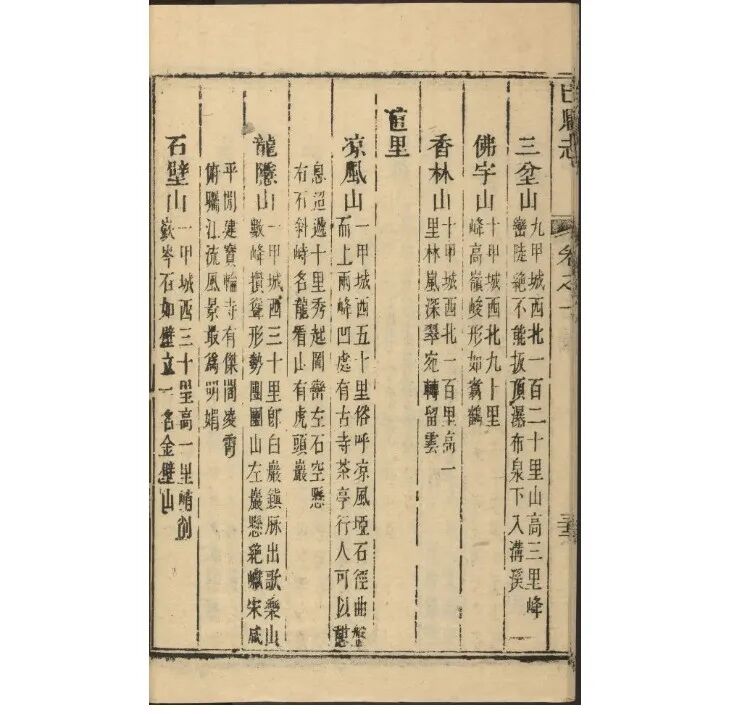 巴縣志 卷之一
三岔山 九甲城西北一百二十里山高三里峰
巒陡絶不能扳頂瀑布泉下入溝溪
佛字山 十甲城西北九十里
峰高嶺峻形如翥鶴
香林山 十甲城西北一百里高一
里林嵐深翠宛轉留雲
直里
凉風山 一甲城西五十里俗呼凉風埡石徑曲盤
而上兩峰凹處有古寺茶亭行人可以憩
息迢遞十里秀起岡巒左石空懸
右石斜峙名龍看山有虎頭巖
龍隱山 一甲城西三十里卽白巖鎮脉出歌樂山
數峰攢聳形勢團圞山左巖懸絶巘宋咸
平間建寶輪寺有傑閣凌霄
俯矚江流風景最爲明媚
石壁山 一甲城西三十里高一里峭削
嶔岑石如壁立一名金壁山